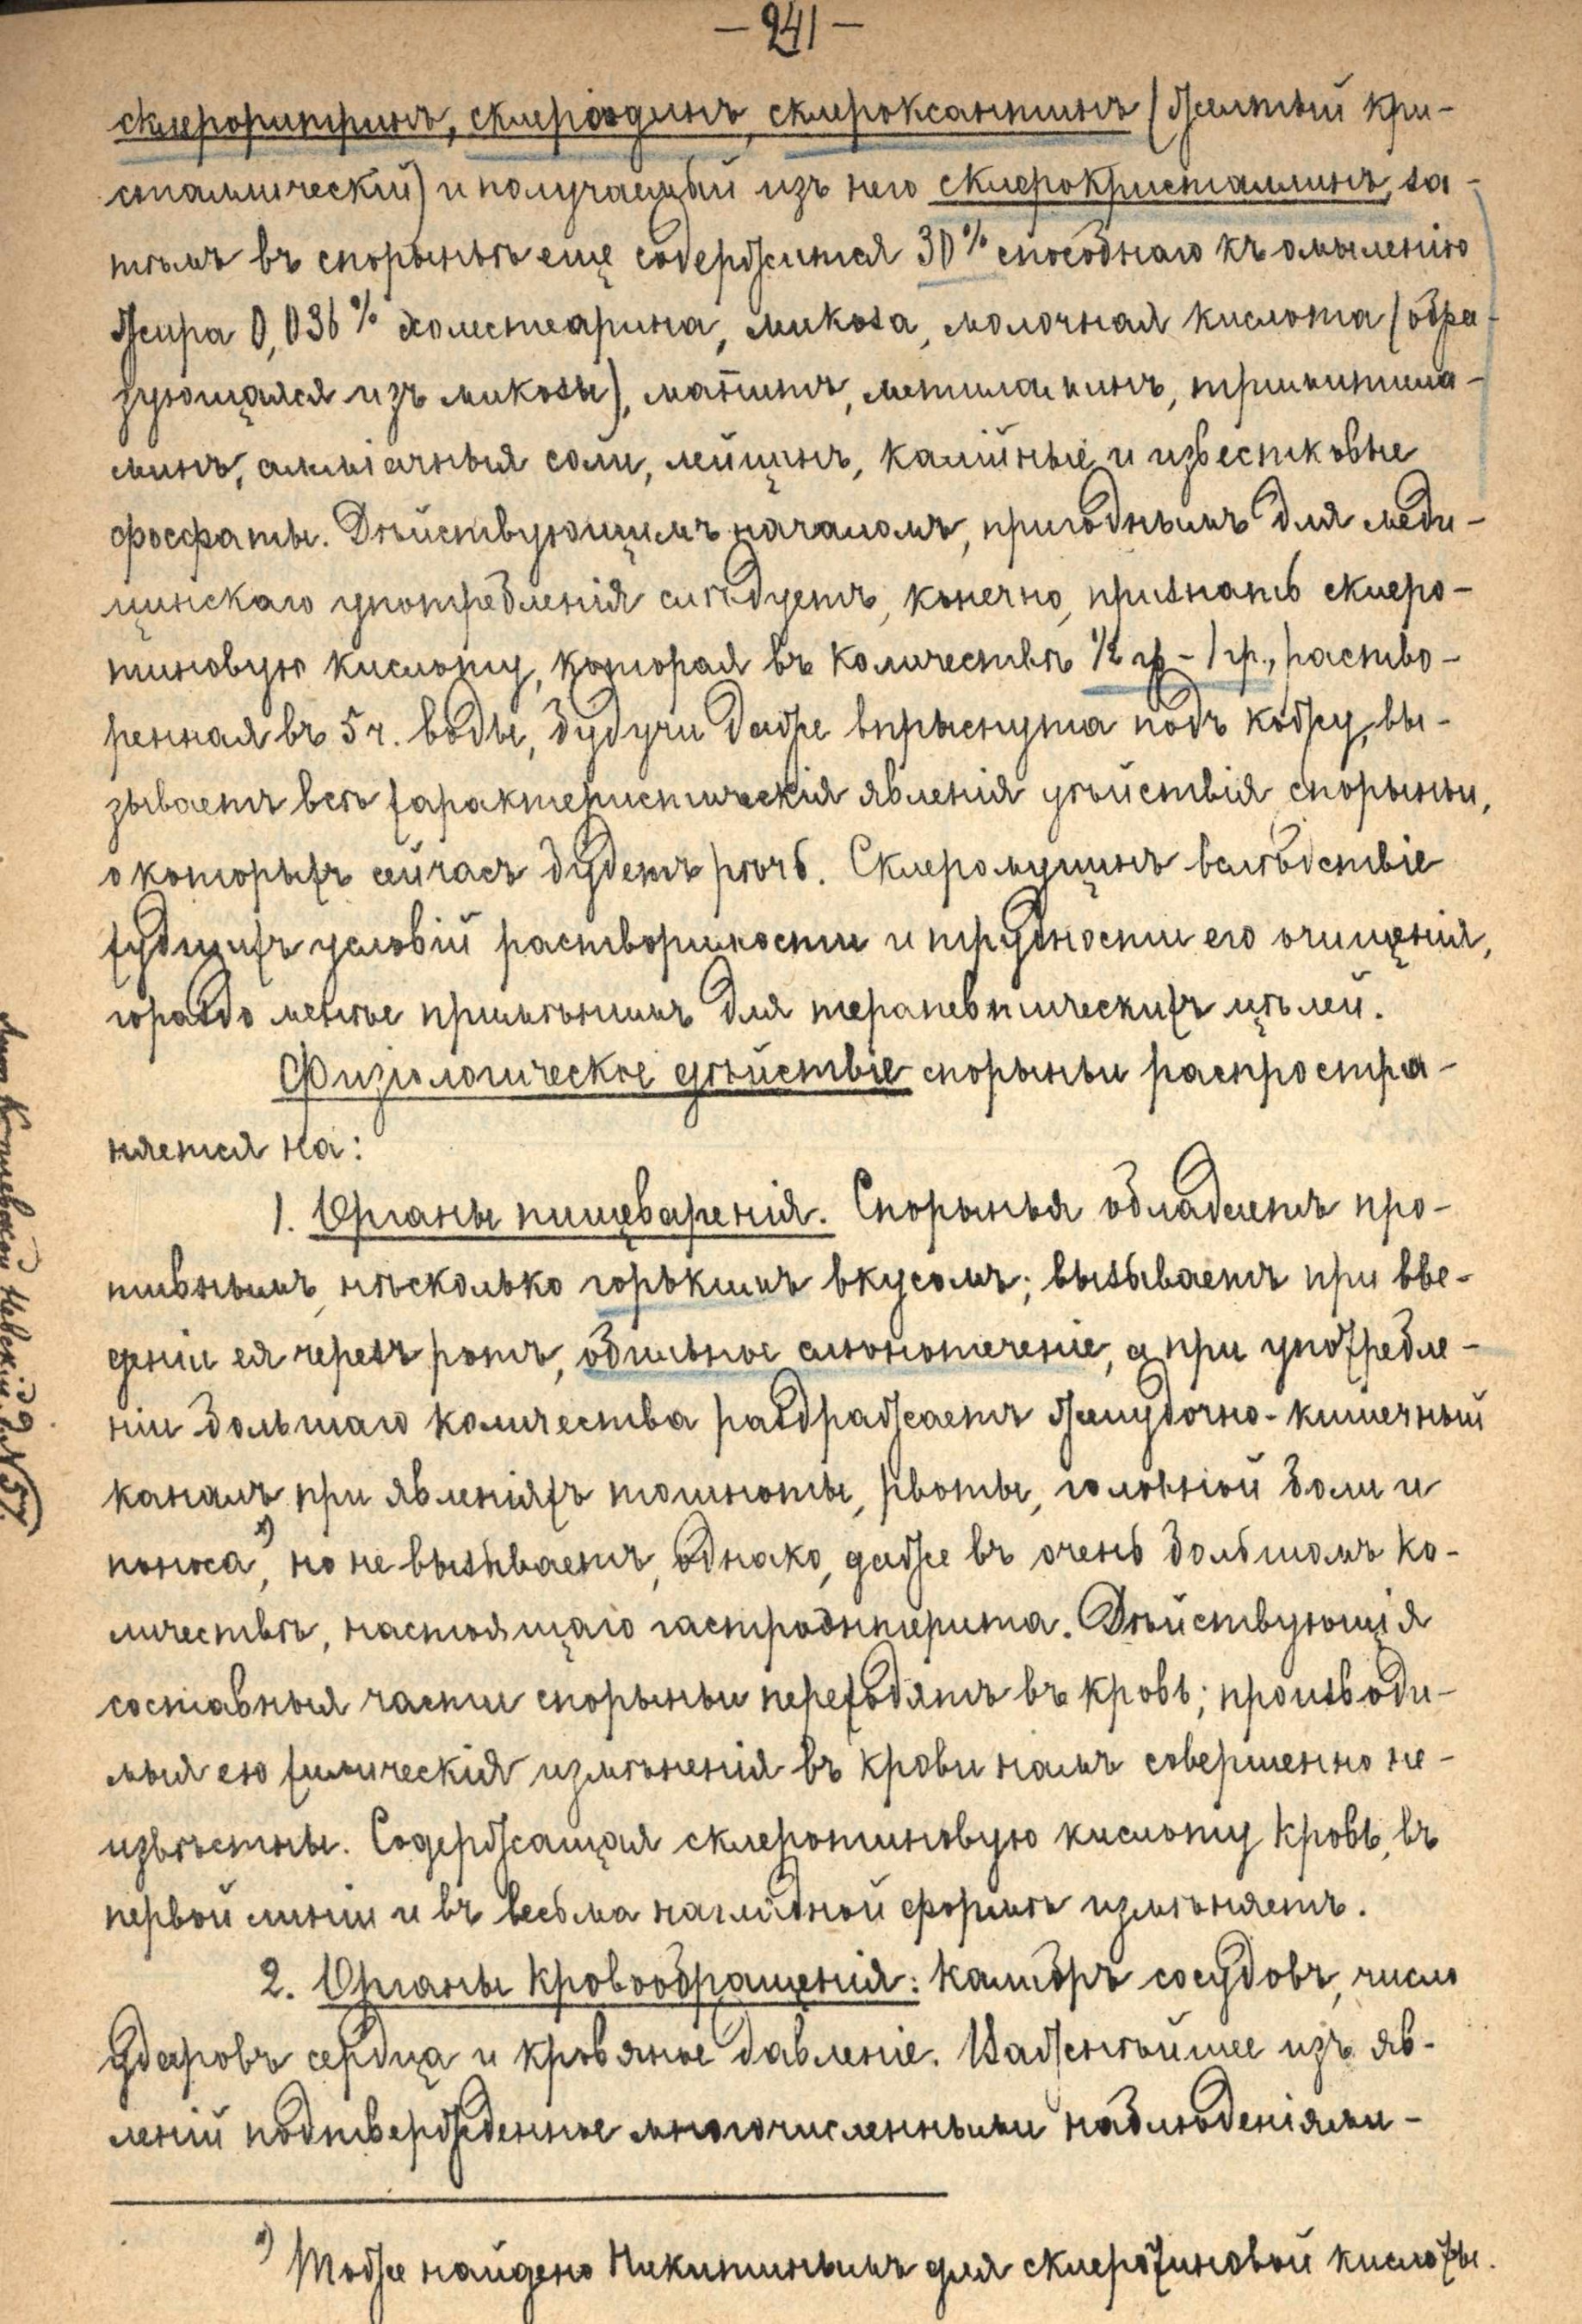 — 241 —
склероритринъ, склеріодинъ, склероксантинъ (желтый кри-
сталлическій) и получаемый изъ него склерокристаллинъ, за-
тѣмъ въ спорыньѣ еще содержится 30% способнаго къ омыленію
жира 0,036% холестеарина, микоза, молочная кислота (обра-
зующаяся изъ микозы), маннитъ, метиламинъ, триметила-
минъ, амміачныя соли, лейцинъ, калійные и известковые
фосфаты. Дѣйствующимъ началомъ, пригоднымъ для меди-
цинскаго употребленія слѣдуетъ, конечно, признать склеро-
тиновую кислоту, которая въ количествѣ ½ гр – 1 гр., раство-
ренная въ 5 ч. воды, будучи даже впрыснута подъ кожу, вы-
зываетъ всѣ характеристическія явленія дѣйствія спорыньи,
о которыхъ сейчасъ будетъ рѣчь. Склеромуцинъ вслѣдствіе
худшихъ условій растворимости и трудности его очищенія,
гораздо менѣе примѣнимъ для терапевтическихъ цѣлей.
Физіологическое дѣйствіе спорыньи распростра-
няется на:
1. Органы пищеваренія. Спорынья обладаетъ про-
тивнымъ, нѣсколько горькимъ вкусомъ; вызываетъ при вве-
деніи ея черезъ ротъ, обильное слюнотеченіе, а при употребле-
ніи большаго количества раздражаетъ желудочно-кишечный
каналъ при явленіяхъ тошноты, рвоты, головной боли и
поноса ˣ⁾, но не вызываетъ, однако, даже въ очень большомъ ко-
личествѣ, настоящаго гастроэнтерита. Дѣйствующія
составныя части спорыньи переходятъ въ кровь; производи-
мыя ею химическія измѣненія въ крови намъ совершенно не-
извѣстны. Содержащая склеротиновую кислоту кровь, въ
первой линіи и въ весьма наглядной формѣ измѣняетъ.
2. Органы кровообращенія: калибръ сосудовъ, число
ударовъ сердца и кровяное давленіе. Важнѣйшее изъ яв-
леній подтвержденное многочисленными наблюденіями-
ˣ⁾ Тоже найдено Никитинымъ для склеротиновой кислоты.
Невскій